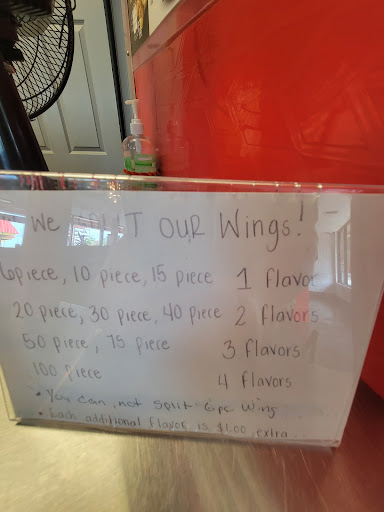 We SPLIT OUR Wings!
6piece, 10 piece, 15 piece 1 flavor
20 piece, 30 piece, 40 piece 2 flavors
50 piece, 75 piece 3 flavors
100 piece 4 flavors
• You can not split 6pc Wing
• Each additional flavor is $1.00 extra